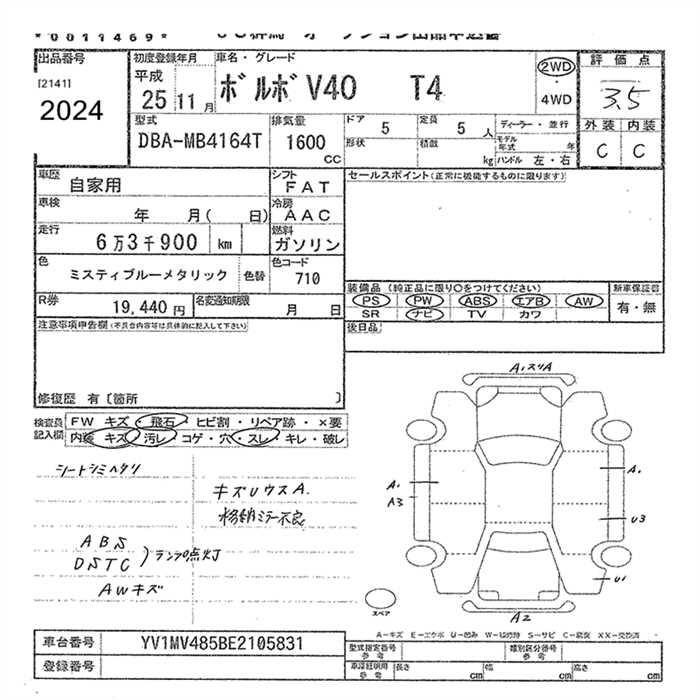 *0011469*
出品番号 初度登録年月 車名・グレード 評価点
[2141] 平成 ボルボ V40 T4 2WD 3.5
2024 25年 11月 ・4WD
外装 内装
型式 排気量 ドア 定員 ディーラー・並行 C C
DBA-MB4164T 1600 5 5人 モデル年式 年
CC 形状 積載 kg ハンドル 左・右
車歴 自家用 シフト FAT セールスポイント(正常に機能するものに限ります)
車検 年 月( 日) 冷房 AAC
走行 6万3千900 km 燃料 ガソリン
色 ミスティブルーメタリック 色替 色コード 710
装備品 (純正品に限り○をつけてください) 新車保証書
R券 19,440円 名変通知期限 月 日 PS PW ABS エアB AW 有・無
SR ナビ TV カワ
注意事項申告欄(不具合内容等は具体的に記入して下さい) 後日品
修復歴 有〔箇所 〕
検査員記入欄 FW キズ・飛石・ヒビ割・リペア跡・×要
内装 キズ・汚レ・コゲ・穴・スレ・キレ・破レ
シートシミヘタリ
キズUウスA.
格納ミラー不良
ABS
DSTC )ランプ点灯
AWキズ
A,スリA
A. A.
A3
U3
U1
スペア
A2
A-キズ E-エクボ U-凹み W-補修跡 S-サビ C-腐食 XX-交換済
車台番号 YV1MV485BE2105831 型式指定番号 参考 類別区分番号 参考
登録番号 車庫証明用 参考 長さ cm 幅 cm 高さ cm